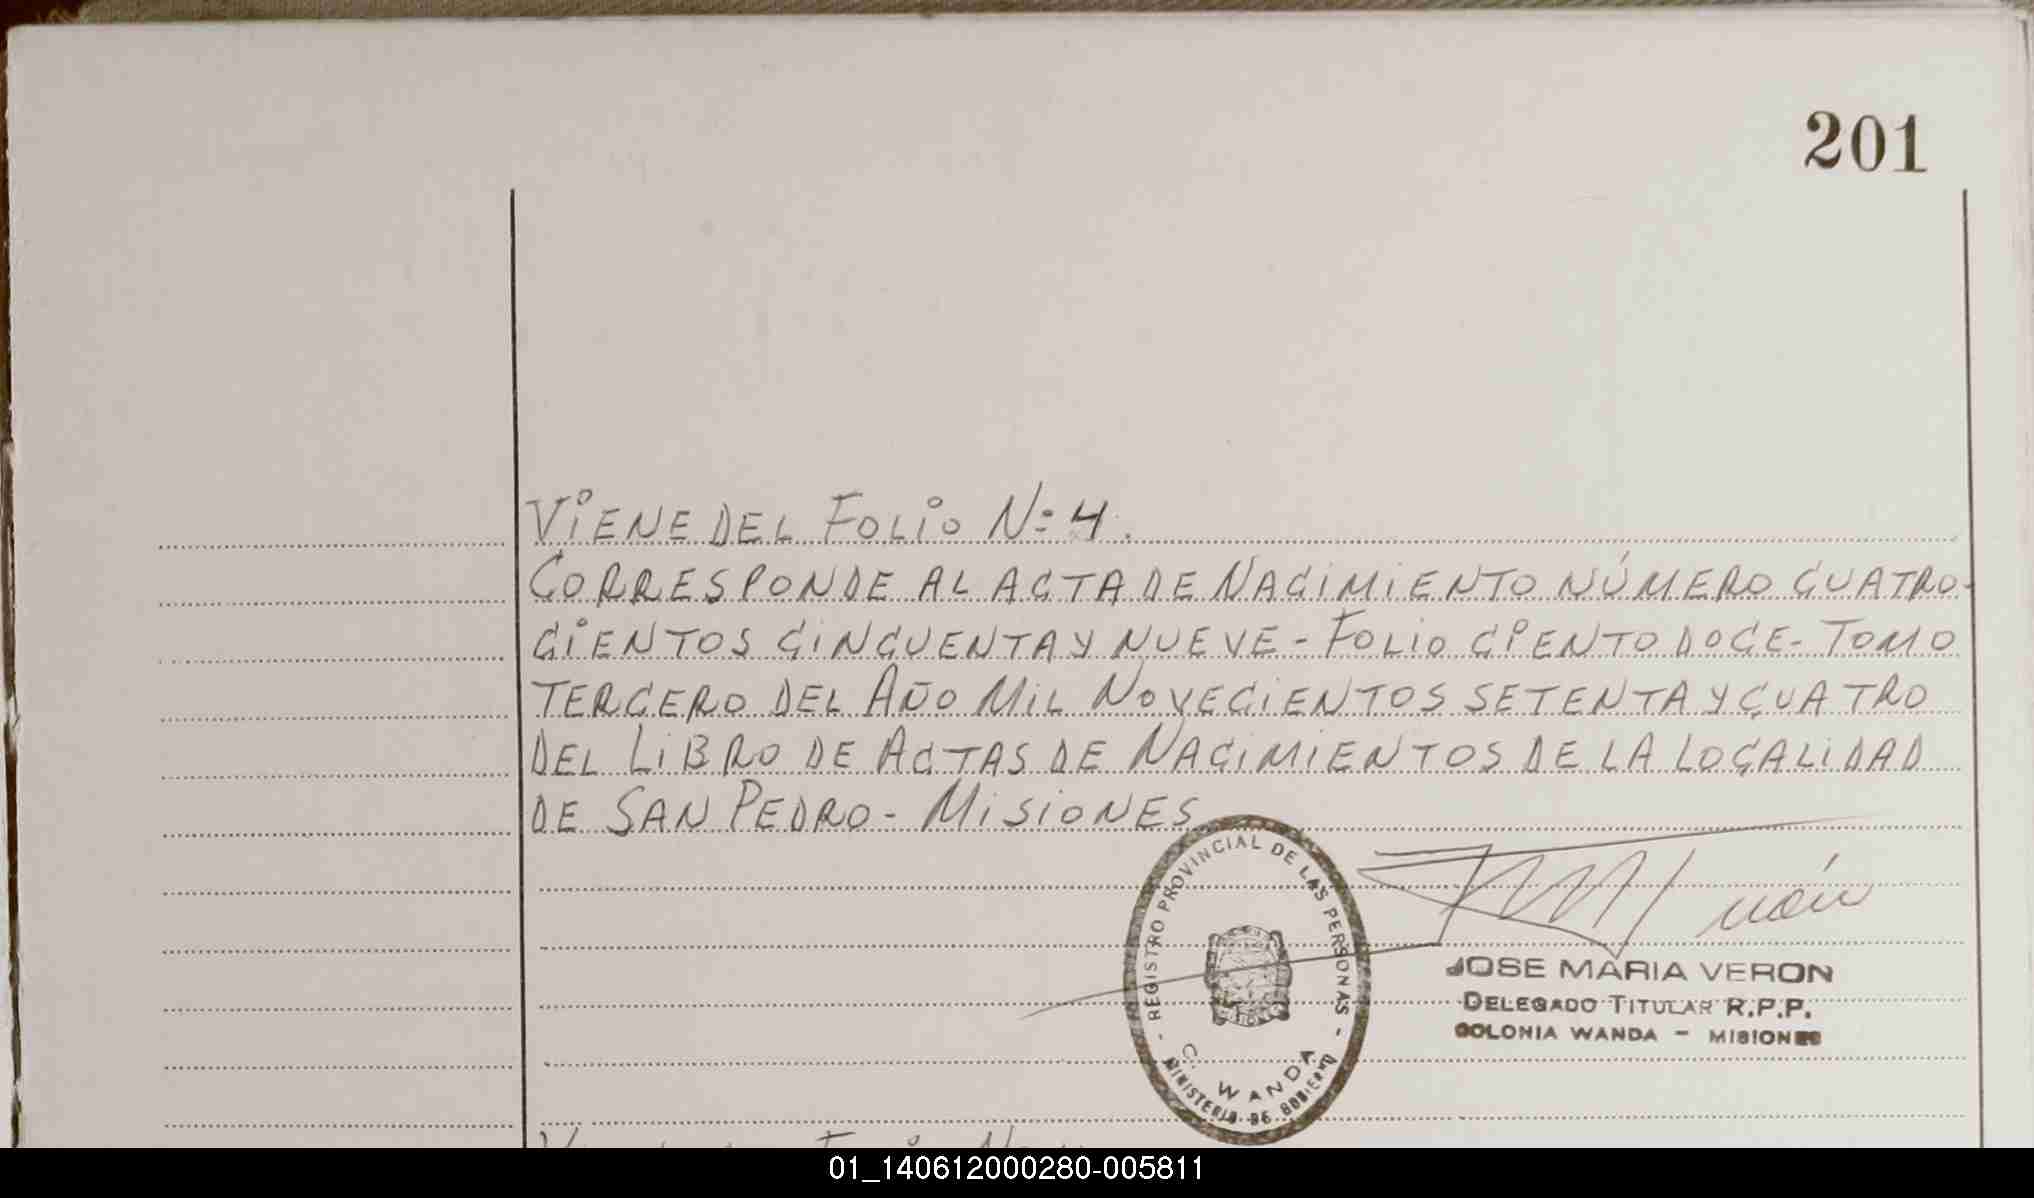 201
Viene del Folio Nº 4.
Corresponde al acta de Nacimiento número cuatro-
cientos cincuenta y nueve - Folio ciento doce - Tomo
tercero del Año Mil Novecientos setenta y cuatro
del Libro de Actas de Nacimientos de la localidad
de San Pedro - Misiones
- REGISTRO PROVINCIAL DE LAS PERSONAS -
C. WANDA
MINISTERIO DE GOBIERNO
JOSE MARIA VERON
DELEGADO TITULAR R.P.P.
COLONIA WANDA - MISIONES
01_140612000280-005811